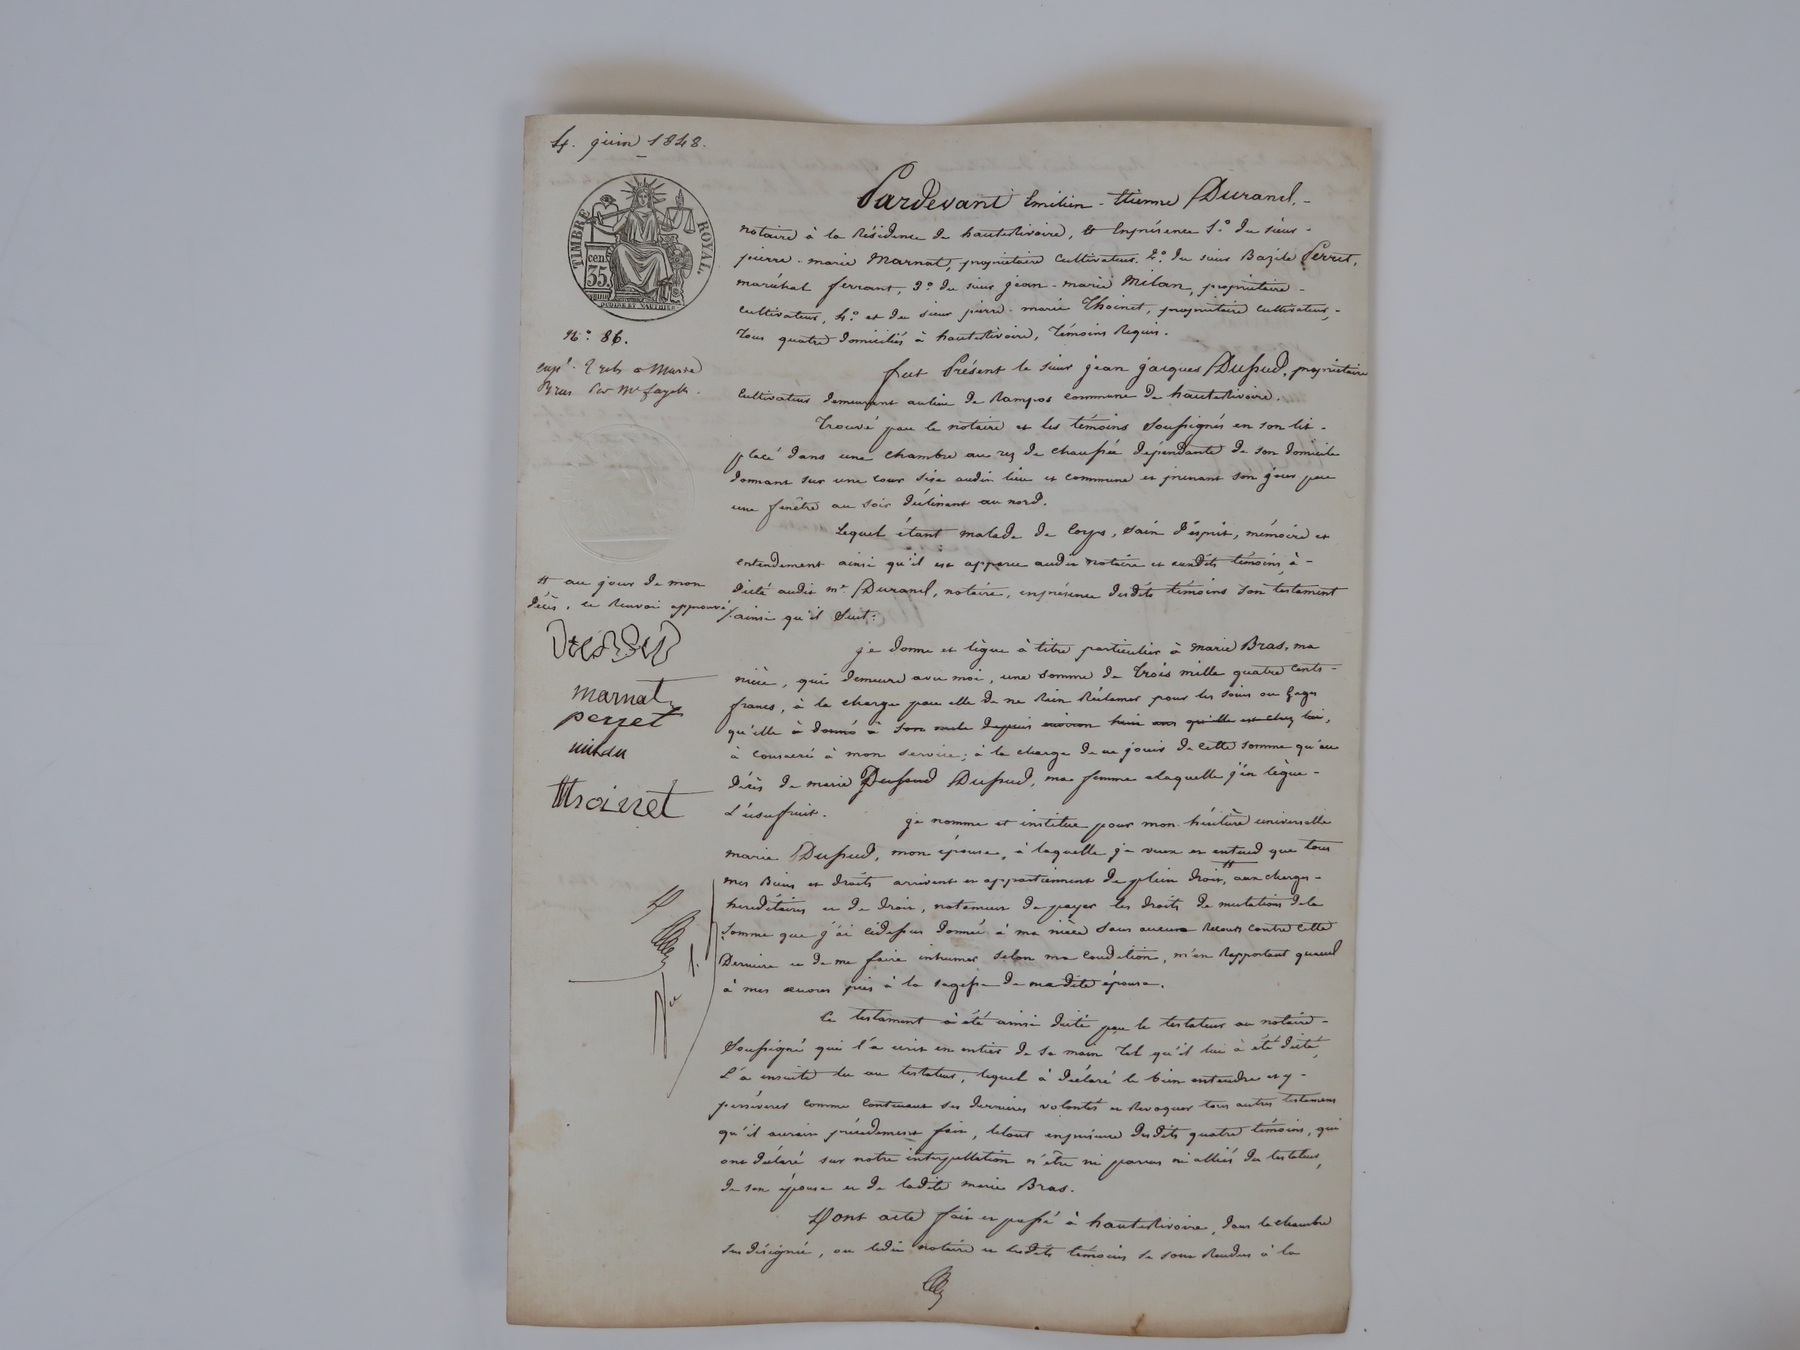 4. juin 1848.
TIMBRE ROYAL.
cen.
35.
N.° 86.
exp.
Bras par Me fayolle.
Pardevant Emilien-Etienne Durand,
notaire à la Résidence de hauteRivoire, & Enprésence 1.° du sieur
pierre-marie Marnat, propriétaire Cultivateur. 2.° du sieur Bazile Perret,
maréchal ferrant, 3.° du sieur jean-marie Milan, propriétaire-
cultivateur, 4.° et du sieur pierre-marie Thoinet, propriétaire cultivateur,
tous quatre domiciliés à hauteRivoire, témoins Requis.
fut Présent le sieur jean jacques Dussud, propriétaire
cultivateur demeurant aulieu de Rampos commune de hauteRivoire.
Trouvé par le notaire et les témoins Soussignés en son lit
placé dans une chambre au rez de chaussée dépendante de son domicile
donnant sur une cour sise audit lieu et commune et prenant son jour par
une fenêtre au soir déclinant au nord.
Lequel étant malade de Corps, Sain d'esprit, mémoire et
entendement ainsi qu'il est apparu audit notaire et auxdits témoins, à
dicté audit me. Durand, notaire, enprésence desdits témoins Son testament
ainsi qu'il Suit:
# au jour de mon
décès, ce Renvoi approuvé
marnat
perret
milan
thoinet
je donne et lègue à titre particulier à marie Bras, ma
nièce, qui demeure avec moi, une Somme de Trois mille quatre Cents
francs, à la charge par elle de ne Rien Réclamer pour les soins ou gages
qu'elle à donné à son oncle depuis environ huit ans qu'elle est chez lui,
à consacré à mon service; à la charge de ne jouir de cette somme qu'au
décès de marie Dussud Dussud, ma femme alaquelle j'en lègue
L'usufruit. je nomme et institue pour mon héritière universelle
marie Dussud, mon épouse, à laquelle je veux et entend que tous
mes Biens et droits arrivent et appartiennent de plein droit, # aux charges
heréditaires et de droit, notament de payer les droits de mutations dela
Somme que j'ai cidessus donnée à ma nièce Sans aucun Recours contre cette
Dernière et de me faire inhumer selon ma condition, m'en Rapportant quand
à mes œuvres pies à la sagesse de madite épouse.
Ce testament à été ainsi dicté par le testateur au notaire
Soussigné qui l'a écrit en entier de sa main Tel qu'il lui à été dicté,
L'a ensuite lu au testateur, lequel à déclaré le bien entendre et y
persévérer comme contenant ses dernières volontés et Revoquer tous autres testamens
qu'il aurait précédement fait, letout enprésence desdits quatre témoins, qui
ont déclaré sur notre interpellation n'être ni parens ni alliés du testateur,
de son épouse et de ladite marie Bras.
Dont acte fait et passé à hauteRivoire, dans la chambre
susdésignée, ou ledit notaire et lesdits témoins se sont Rendus à la